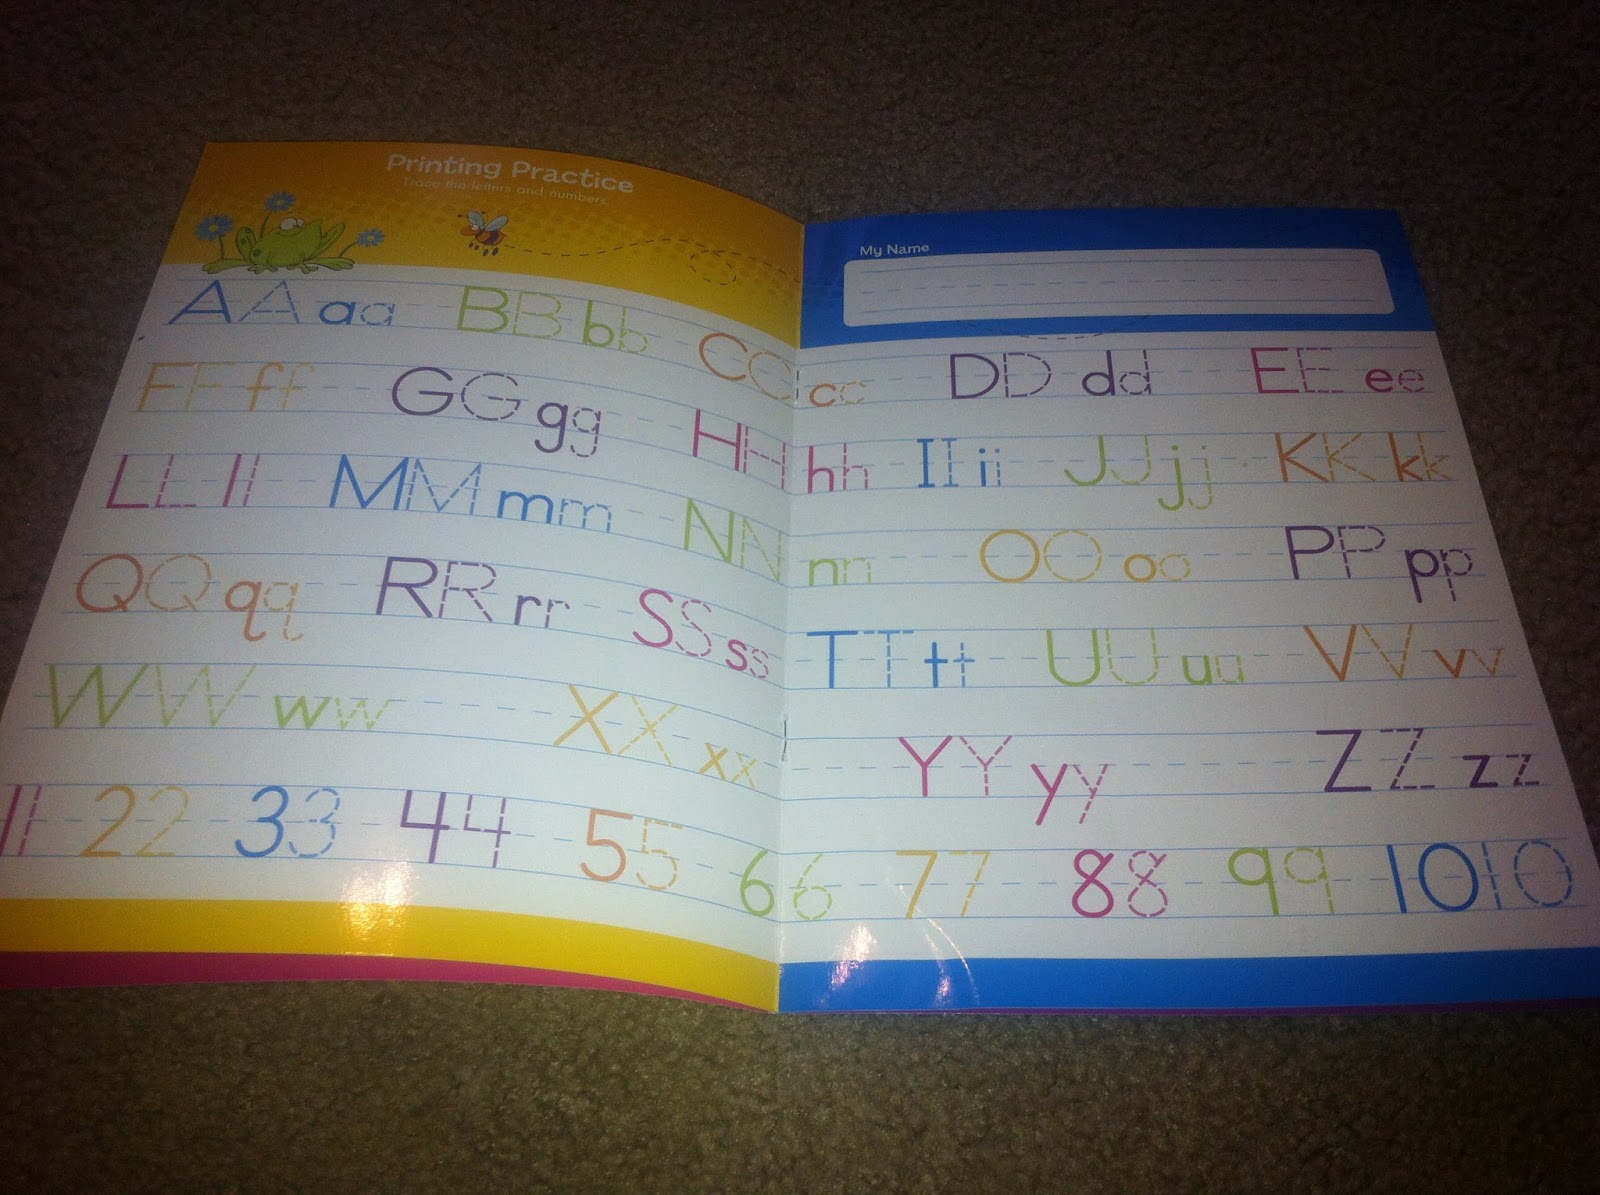 Printing Practice
Trace the letters and numbers.
My Name
AA aa BB bb CC cc DD dd EE ee
FF ff GG gg HH hh II ii JJ jj KK kk
LL ll MM mm NN nn OO oo PP pp
QQ qq RR rr SS ss TT tt UU uu VV vv
WW ww XX xx YY yy ZZ zz
11 22 33 44 55 66 77 88 99 1010